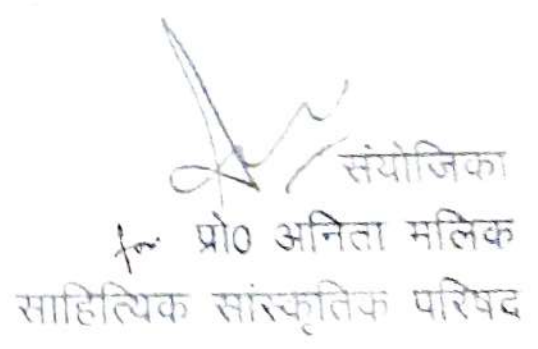 संयोजिका
for प्रो0 अनिता मलिक
साहित्यिक सांस्कृतिक परिषद